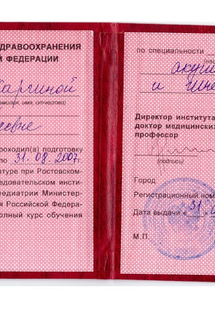 ДРАВООХРАНЕНИЯ
Й ФЕДЕРАЦИИ
(фамилия, имя, отчество)
проходил(а) подготовку
по 31.08.2007.
атуре при Ростовском
едовательском инсти-
педиатрии Министер-
я Российской Федера-
олный курс обучения
по специальности
акуш
и гине
Директор института
доктор медицинских
профессор
(подпись)
Город
Регистрационный номер
Дата выдачи « 31
М.П.